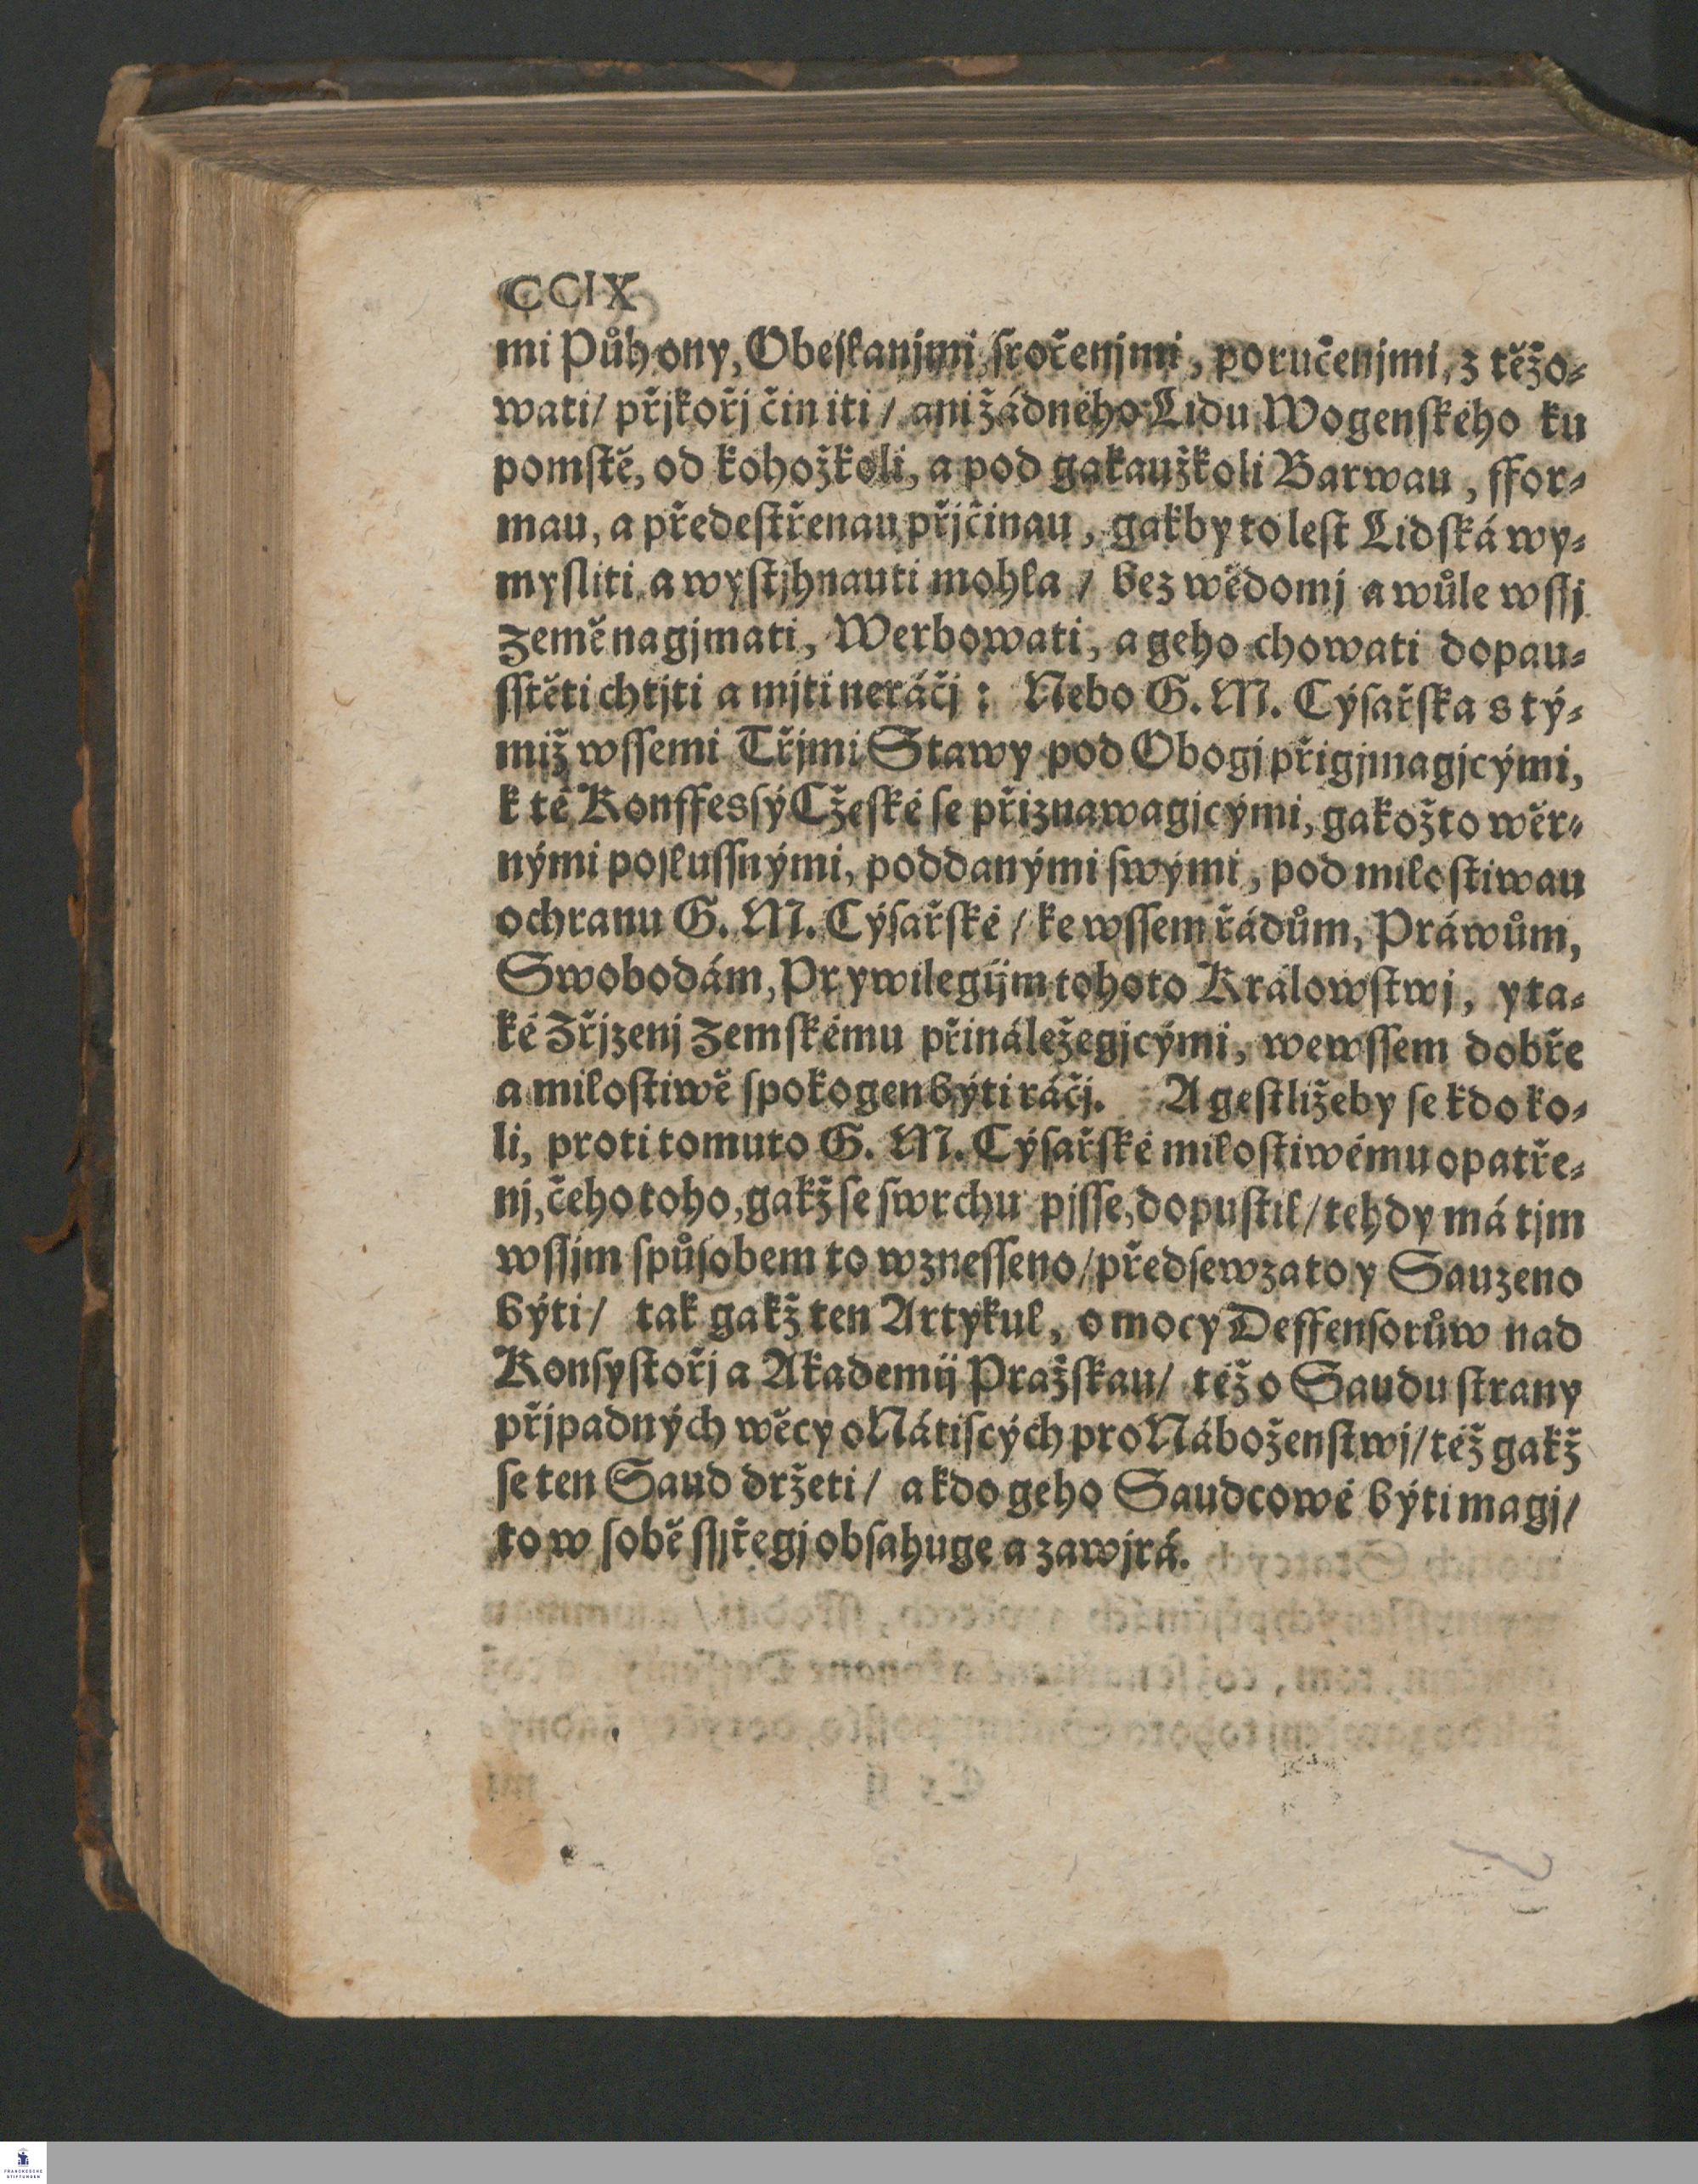 CCIX
mi Půhony, Obeſlanjmi, ſročenjmi, poručenjmi, z těžo⸗
wati/ přjkořj činiti / ani žádného Lidu Wogenſkého ku
pomſtě, od kohožkoli, a pod gakaužkoli Barwau, ffor⸗
mau, a předeſtřenau přjčinau, gakby to leſt Lidſká wy⸗
mysliti a wyſtjhnauti mohla / bez wědomj a wůle wſſj
Země nagjmati, Werbowati, a geho chowati dopau⸗
ſſtěti chtjti a mjti neráčj: Nebo G. M. Cýſařſka s tý⸗
miž wſſemi Třjmi Stawy pod Obogj přigjmagjcými,
k té Konffesſý Cžeſké ſe přiznawagjcými, gakožto wěr⸗
nými poſluſſnými, poddanými ſwými, pod miloſtiwau
ochranu G. M. Cýſařſké / ke wſſem řádům, Práwům,
Swobodám, Prywilegijm tohoto Králowſtwj, y ta⸗
ké Zřjzenj Zemſkému přináležegjcými, wewſſem dobře
a miloſtiwě ſpokogen býti ráčj. A geſtližeby ſe kdo ko⸗
li, proti tomuto G. M. Cýſařſké miloſtiwému opatře⸗
nj, čeho toho, gakž ſe ſwrchu pjſſe, dopuſtil/ tehdy má tjm
wſſjm ſpůſobem to wzneſſeno/ předſewzato y Sauzeno
býti/ tak gakž ten Artykul, o mocy Deffenſorůw nad
Konſyſtořj a Akademij Pražſkau/ též o Saudu ſtrany
přjpadných wěcy o Nátiſcých pro Náboženſtwj/ též gakž
ſe ten Saud držeti / a kdo geho Saudcowé býti magj/
to w ſobě ſſjřegj obſahuge a zawjrá.
FRANCKESCHE
STIFTUNGEN